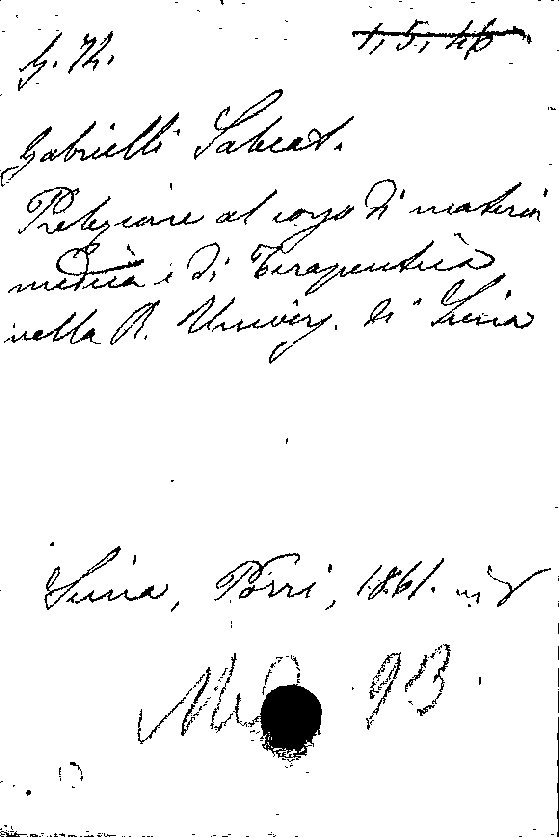 G. 72.
1, 5, 46
Gabrielli Salvat.
Prelezione al corso di materia
medica e di Terapeutica
nella R. Univers. di Siena
Siena, Porri, 1861. in 8
93.